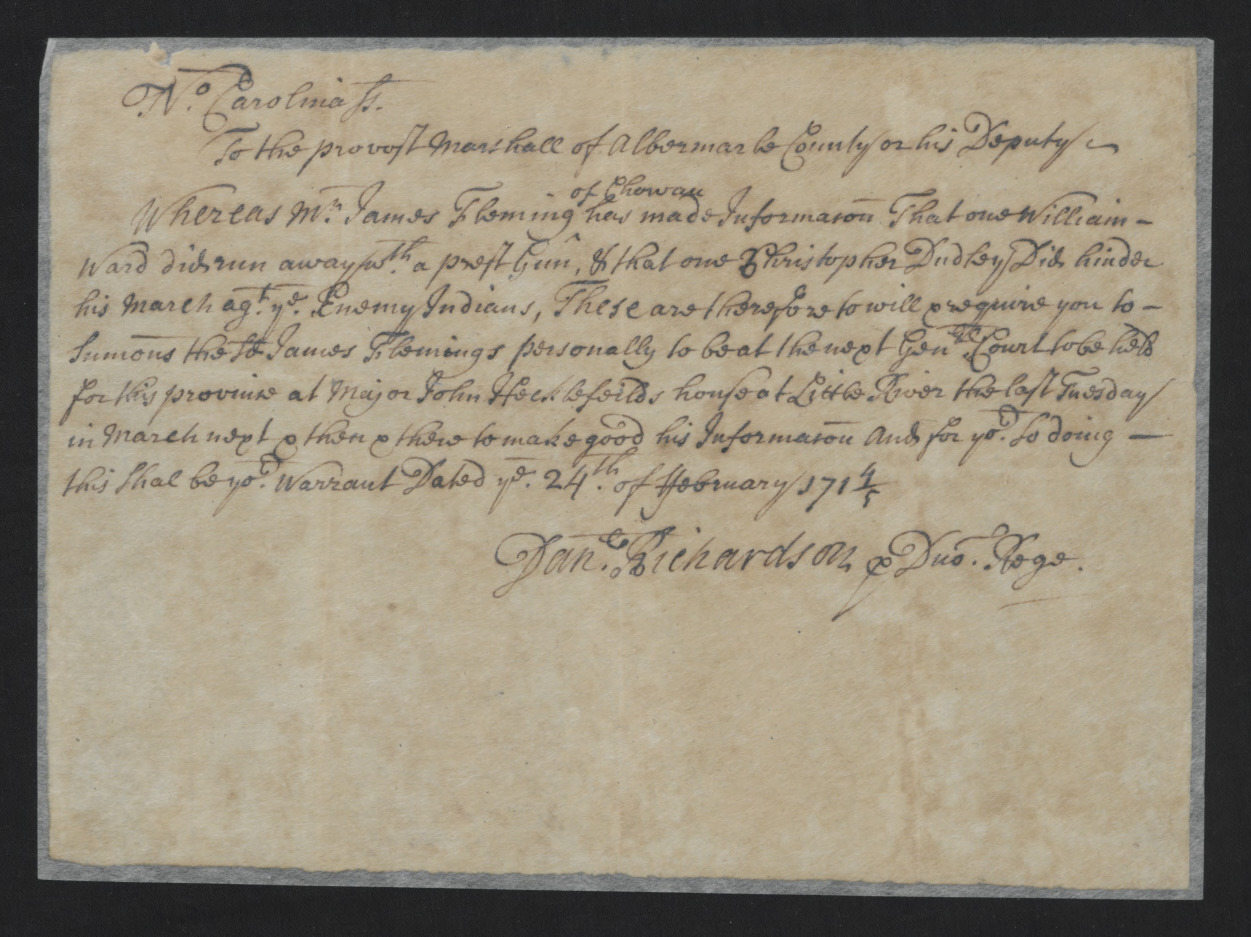 No. Carolina ss.
To the provost Marshall of Albermarle County or his Deputy
of Chowan
Whereas Mr. James Fleming has made Informacon That one William
Ward did run away wth. a prest Gun, & that one Christopher Dudley Did hinder
his March agt. ye. Enemy Indians, These are therefore to will & require you to
Sumons the sd James Flemings personally to be at the next Genll. Court to be held
for this province at Major John Hecklefeilds house at Little River the last Tuesday
in March next & then & there to make good his Informacon And for yor. so doing
this shal be yor. Warrant Dated ye. 24th. of ffebruary 171 4/5
Danl. Richardson p Dno. Rege.